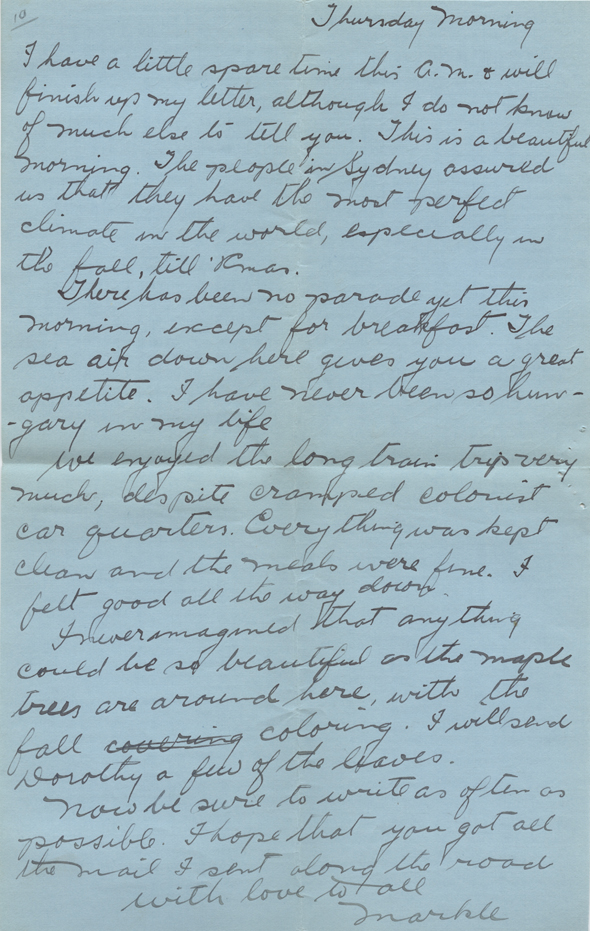 10
Thursday Morning
I have a little spare time this a.m. & will
finish up my letter, although I do not know
of much else to tell you. This is a beautiful
morning. The people in Sydney assured
us that they have the most perfect
climate in the world, especially in
the fall, till Xmas.
There has been no parade yet this
morning, except for breakfast. The
sea air down here gives you a great
appetite. I have never been so hun-
-gary in my life
We enjoyed the long train trip very
much, despite cramped colonist
car quarters. Everything was kept
clean and the meals were fine. I
felt good all the way down.
I never imagined that anything
could be so beautiful as the maple
trees are around here, with the
fall covering coloring. I will send
Dorothy a few of the leaves.
Now be sure to write as often as
possible. I hope that you got all
the mail I sent along the road
with love to all
Markle